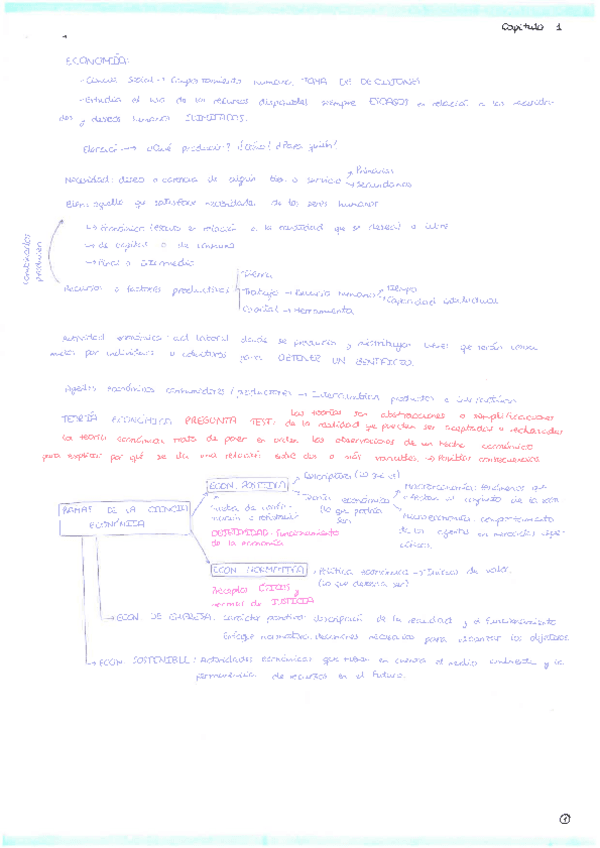 Capítulo 1
ECONOMÍA:
- Ciencia Social → Comportamiento humano, TOMA DE DECISIONES
- Estudia el uso de los recursos disponibles siempre ESCASOS en relación a las necesida-
des y deseos humanos ILIMITADOS.
Elección → ¿Qué producir? ¿Cómo? ¿Para quién?
Necesidad: deseo o carencia de algún bien o servicio → Primarias
→ Secundarias
Bien: aquello que satisface necesidades de los seres humanos
↳ Económico: escaso en relación a la cantidad que se desea o libre
↳ de capital o de consumo
↳ Final o intermedio
Combinados producen
Recursos o factores productivos
Tierra
Trabajo → Recurso humano → Tiempo
→ Capacidad individual
Capital → Herramienta
Actividad económica: act laboral donde se producen y distribuyen bienes que serán consu-
midos por individuos o colectivos para OBTENER UN BENEFICIO.
Agentes económicos consumidores / productores → Intercambian productos
TEORÍA ECONÓMICA PREGUNTA TEST: las teorías son abstracciones o simplificaciones
de la realidad que pueden ser aceptadas o rechazadas
La teoría económica trata de poner en orden las observaciones de un hecho económico
para explicar por qué se da una relación entre dos o más variables. → Posibles consecuencias.
RAMAS DE LA CIENCIA
ECONÓMICA
ECON. POSITIVA
→ Descriptiva (lo que es)
→ Teoría económica
(lo que podría
ser)
Macroeconomía: fenómenos que
afectan al conjunto de la econ
Microeconomía: comportamiento
de los agentes en mercados espe-
cíficos.
OBJETIVIDAD: Funcionamiento
de la economía
ECON NORMATIVA → Política económica → Juicios de valor.
(lo que debería ser)
Preceptos ÉTICOS y
normas de JUSTICIA
→ ECON. DE EMPRESA: carácter positivo: descripción de la realidad y el funcionamiento
Enfoque normativo: decisiones necesarias para alcanzar los objetivos.
→ ECON. SOSTENIBLE: Actividades económicas que tienen en cuenta el medio ambiente y la
permanencia de recursos en el futuro.
1